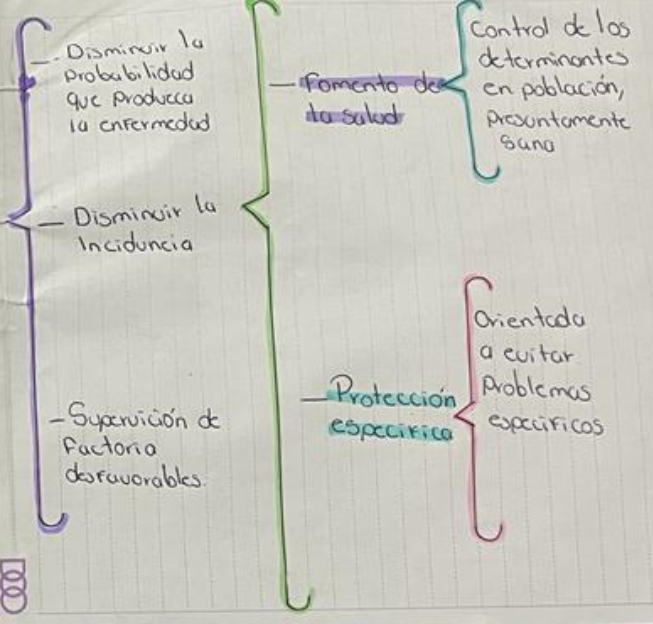 - Disminuir la
probabilidad
que Produzca
la enfermedad
- Disminuir la
Incidencia
- Supervición de
Factoria
desfavorables.
- Fomento de
la salud
Control de los
determinantes
en población,
Presuntamente
Sana
- Protección
especifica
Orientada
a evitar
Problemas
especificos